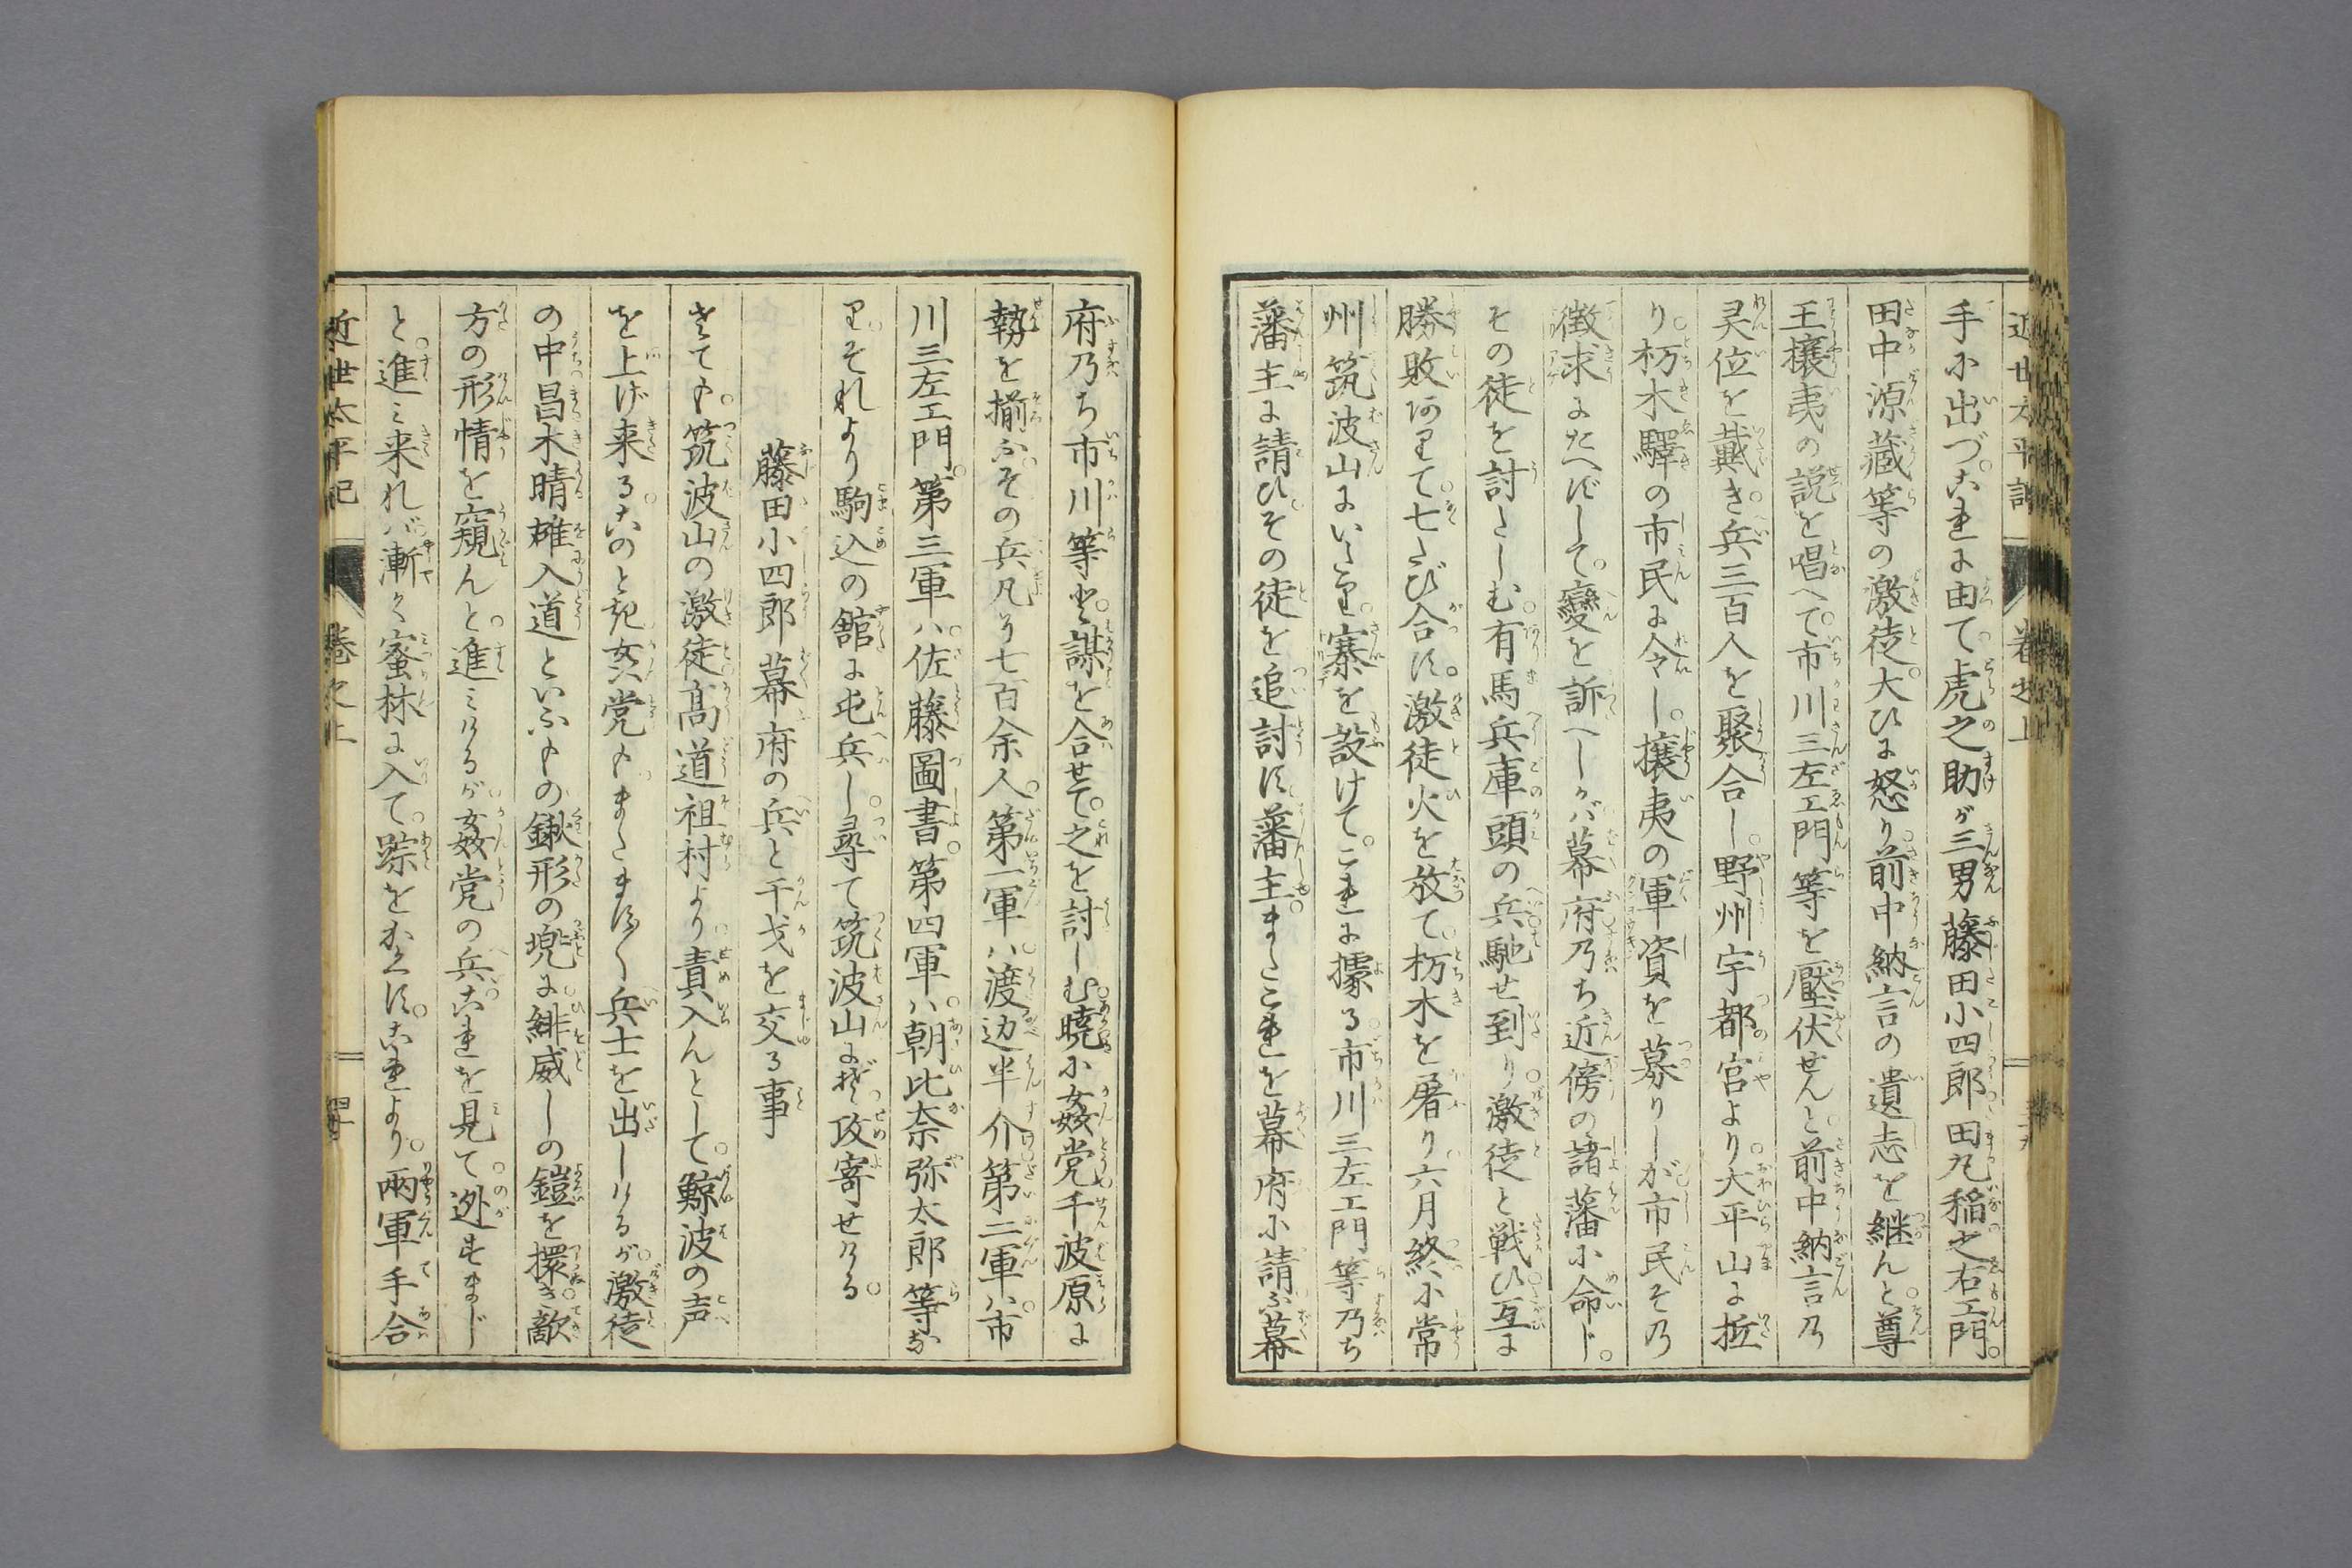 近世太平記 巻之上
手小出づ。これに由て。虎之助が三男藤田小四郎田丸稲之右エ門。
田中源蔵等の激徒。大ひに怒り。前中納言の遺志を継んと。尊
王攘夷の説を唱へて。市川三左エ門等を壓伏せんと。前中納言乃
灵位を戴き。兵三百人を聚合し。野州宇都宮より。大平山に拠
り。栃木驛の市民に令し。攘夷の軍資を募りしが市民その
徴求にたへずして。變を訴へしかバ幕府乃ち近傍の諸藩小命じ。
その徒を討たしむ。有馬兵庫頭の兵馳せ到り。激徒と戦ひ。互に
勝敗ありて。七たび合す。激徒火を放て。栃木を屠り。六月終小常
州筑波山にいたり。寨を設けて。これに據る。市川三左エ門等乃ち
藩主に請ひ。その徒を追討す。藩主またこれを幕府小請ふ幕
府乃ち市川等と。謀を合せて。之を討しむ。暁小姦党千波原に
勢を揃ふ。その兵凡そ七百余人。第一軍ハ。渡辺半介。第二軍ハ。市
川三左エ門。第三軍ハ。佐藤圖書。第四軍ハ。朝比奈弥太郎等な
り。それより駒込の舘に屯兵し。尋て筑波山にぞ攻寄せける。
藤田小四郎幕府の兵と干戈を交る事
さても。筑波山の激徒。高道祖村より。責入んとして。鯨波の声
を上げ来る。このとき姦党も。またまた兵士を出しけるが。激徒
の中昌木晴雄入道といふもの鍬形の兜に。緋威しの鎧を擐き。敵
方の形情を窺んと。進ミけるが姦党の兵。これを見て。迯すまじ
と。進ミ来れバ漸く蜜林に入て。踪をかくす。これより。兩軍手合
近世太平記 巻之上 四十